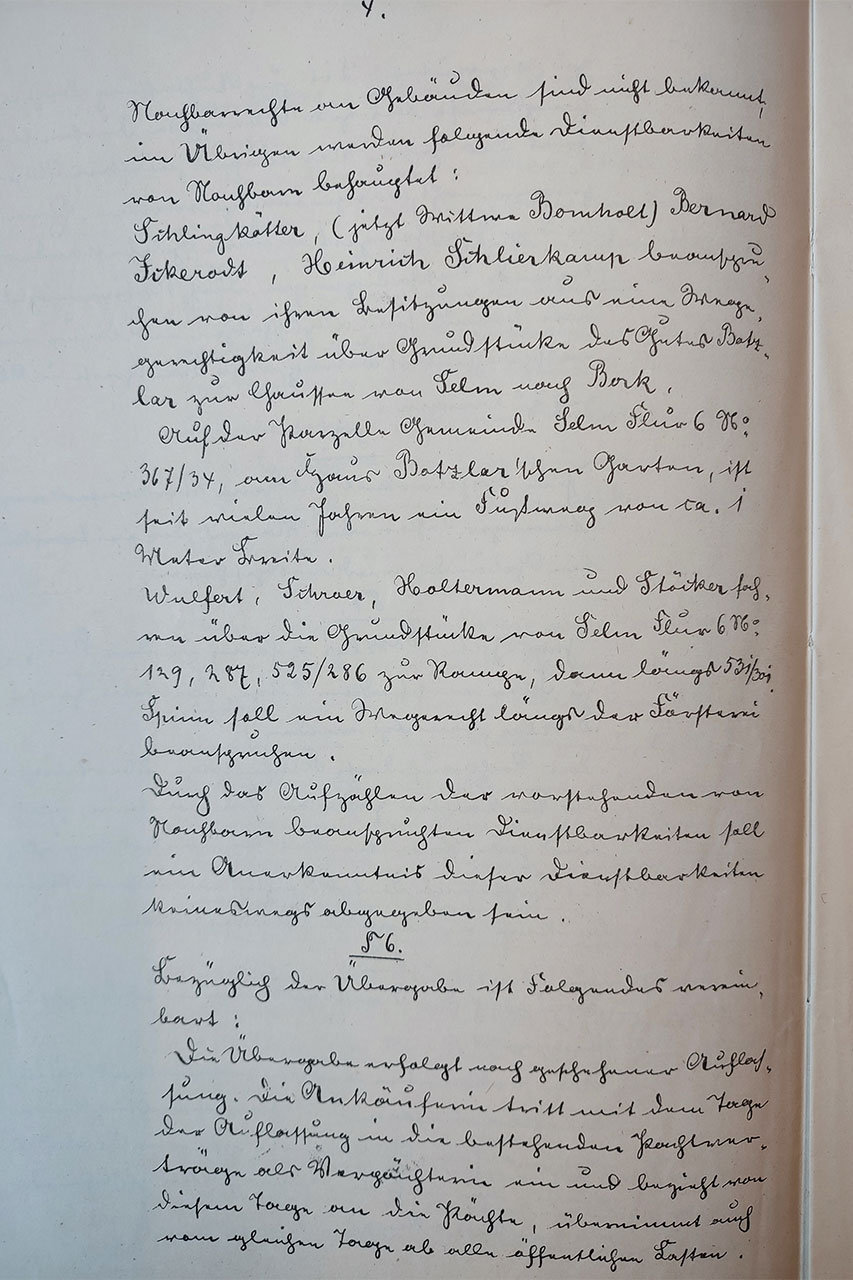 4.
Nachbarrechte an Gebäuden sind nicht bekannt,
im Übrigen werden folgende Dienstbarkeiten
von Nachbarn behauptet :
Schlingkötter, (jetzt Wittwe Bomholt) Bernard
Ickerodt, Heinrich Schlierkamp beanspru-
chen von ihren Besitzungen aus eine Wege-
gerechtigkeit über Grundstücke des Gutes Botz-
lar zur Chaussee von Selm nach Bork.
Auf der Parzelle Gemeinde Selm Flur 6 No.
367/34, am Haus Botzlar'schen Garten, ist
seit vielen Jahren ein Fußweg von ca. 1
Meter Breite.
Wulfert, Schroer, Holtermann und Stöcker fah-
ren über die Grundstücke von Selm Flur 6 No.
129, 287, 525/286 zur Rampe, dann längs 531/301.
Spinn soll ein Wegerecht längs der Försterei
beanspruchen.
Durch das Aufzählen der vorstehenden von
Nachbarn beanspruchten Dienstbarkeiten soll
ein Anerkenntnis dieser Dienstbarkeiten
keineswegs abgegeben sein.
§ 6.
Bezüglich der Übergabe ist Folgendes verein-
bart :
Die Übergabe erfolgt nach geschehener Auflas-
sung. Die Ankäuferin tritt mit dem Tage
der Auflassung in die bestehenden Pachtver-
träge als Verpächterin ein und bezieht von
diesem Tage an die Pächte, übernimmt auch
vom gleichen Tage ab alle öffentlichen Lasten.